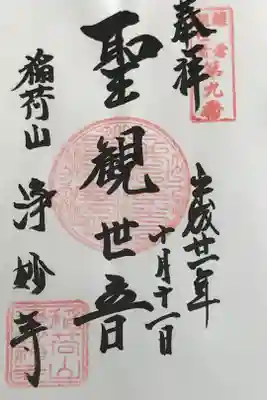 第九番
奉拝
平成廿一年
十月十一日
聖観世音
稲荷山
浄妙寺